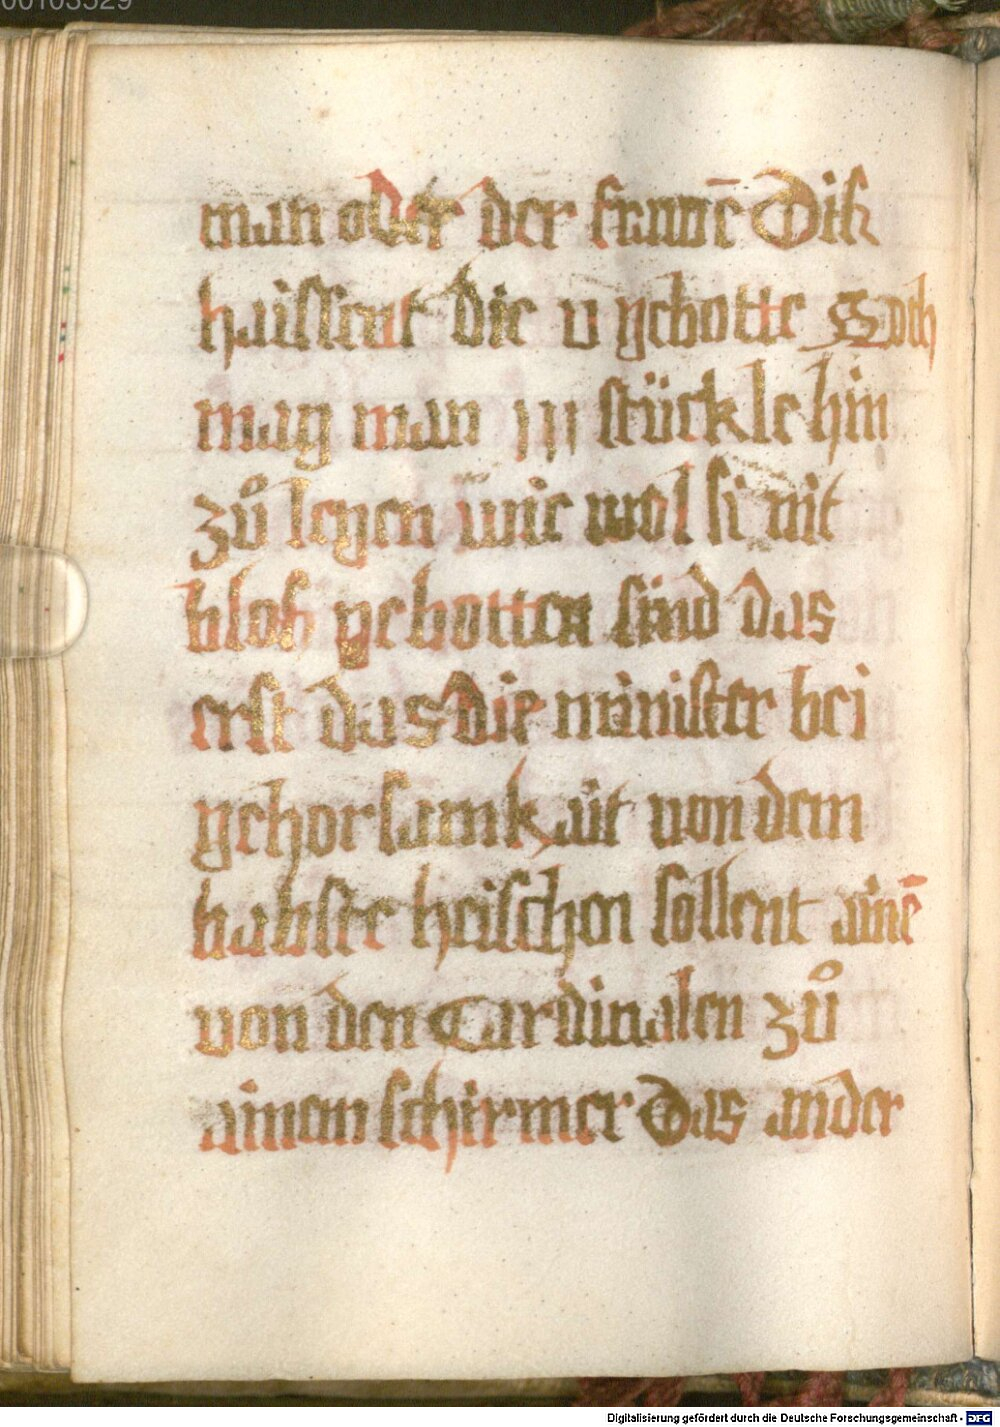 00103529
man oder der frauwē Dis
haissent die v gebotte Doch
mag man iii stückle hin
zů legen wie wol si nit
blos gebotten sind das
erst das die minister bei
gehorsamkait von dem
babste heischen söllent ainē
von den Cardinalen zů
ainem schirmer Das ander
Digitalisierung gefördert durch die Deutsche Forschungsgemeinschaft - DFG